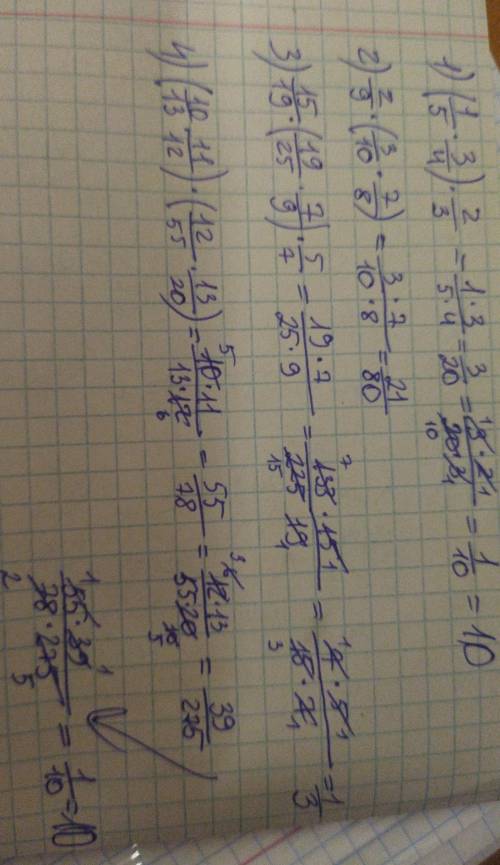 1) (1/5 · 3/4) · 2/3 = 1·3/5·4 = 3/20 = 3·2/20·3 = 1/10 = 10
2) 2/9 · (3/10 · 7/8) = 3·7/10·8 = 21/80
3) 15/19 · (19/25 · 7/9) · 5/7 = 19·7/25·9 = 133·15/225·19 = 7·5/15·7 = 1/3
4) (10/13 · 11/12) · (12/55 · 13/20) = 10·11/13·12 = 55/78 = 12·13/55·20 = 39/275
55·39/78·275 = 1/10 = 10